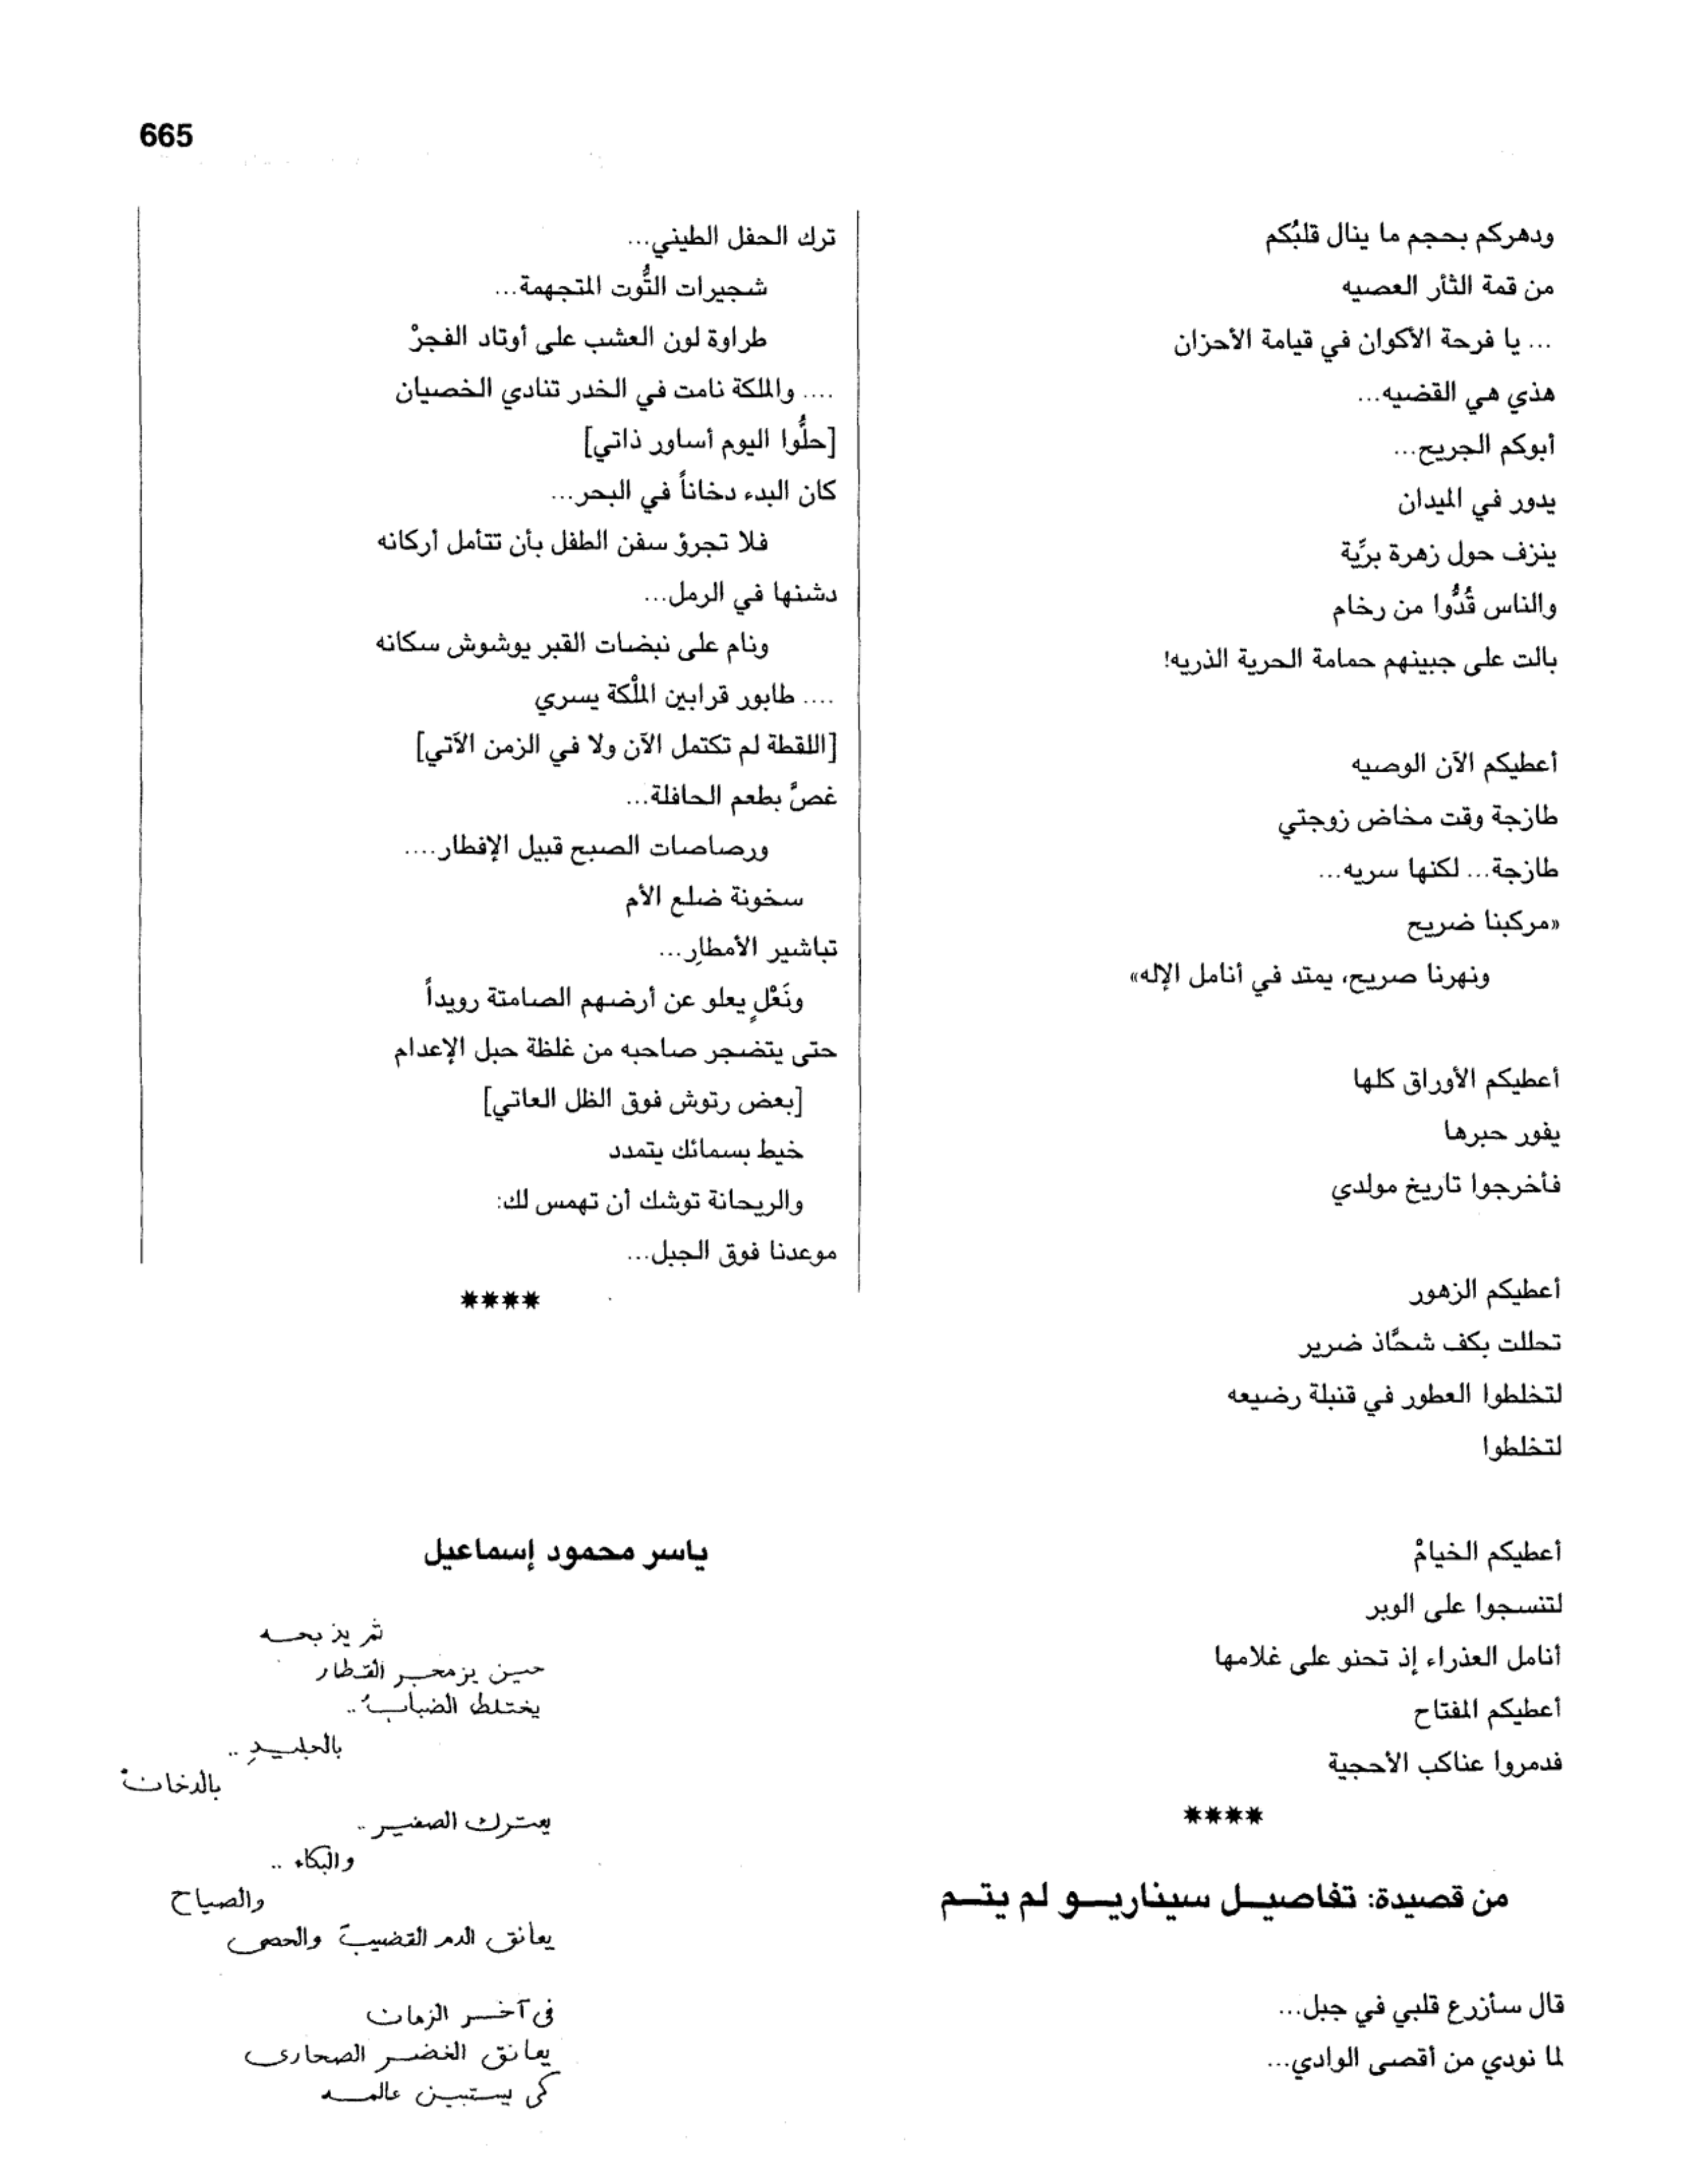 665
ودهركم بحجم ما ينال قلبُكم
من قمة الثأر العصيه
... يا فرحة الأكوان في قيامة الأحزان
هذي هي القضيه...
أبوكم الجريح...
يدور في الميدان
ينزف حول زهرة برِّية
والناس قُدُّوا من رخام
بالت على جبينهم حمامة الحرية الذريه!
أعطيكم الآن الوصيه
طازجة وقت مخاض زوجتي
طازجة... لكنها سريه...
«مركبنا ضريح
ونهرنا صريح، يمتد في أنامل الإله»
أعطيكم الأوراق كلها
يفور حبرها
فأخرجوا تاريخ مولدي
أعطيكم الزهور
تحللت بكف شحَّاذ ضرير
لتخلطوا العطور في قنبلة رضيعه
لتخلطوا
أعطيكم الخيامْ
لتنسجوا على الوبر
أنامل العذراء إذ تحنو على غلامها
أعطيكم المفتاح
فدمروا عناكب الأحجية
****
من قصيدة: تفاصيـل سيناريـو لم يتـم
قال سأزرع قلبي في جبل...
لما نودي من أقصى الوادي...
ترك الحفل الطيني...
شجيرات التُّوت المتجهمة...
طراوة لون العشب على أوتاد الفجرْ
.... والملكة نامت في الخدر تنادي الخصيان
[حلُّوا اليوم أساور ذاتي]
كان البدء دخاناً في البحر...
فلا تجرؤ سفن الطفل بأن تتأمل أركانه
دشنها في الرمل...
ونام على نبضات القبر يوشوش سكانه
.... طابور قرابين الملْكة يسري
[اللقطة لم تكتمل الآن ولا في الزمن الآتي]
غصَّ بطعم الحافلة...
ورصاصات الصبح قبيل الإفطار....
سخونة ضلع الأم
تباشير الأمطارِ...
ونَعْلٍ يعلو عن أرضهم الصامتة رويداً
حتى يتضجر صاحبه من غلظة حبل الإعدام
[بعض رتوش فوق الظل العاتي]
خيط بسمائك يتمدد
والريحانة توشك أن تهمس لك:
موعدنا فوق الجبل...
****
ياسر محمود إسماعيل
ثم يذبحـه
حين يزمجر القطار
يختلط الضبابُ..
بالجليدِ ..
بالدخانْ
يعترك الصفير ..
والبكاء ..
والصياح
يعانق الدم القضيبَ والحصى
فى آخر الزمان
يعانق الخضر الصحارى
كى يستبين عالمـه